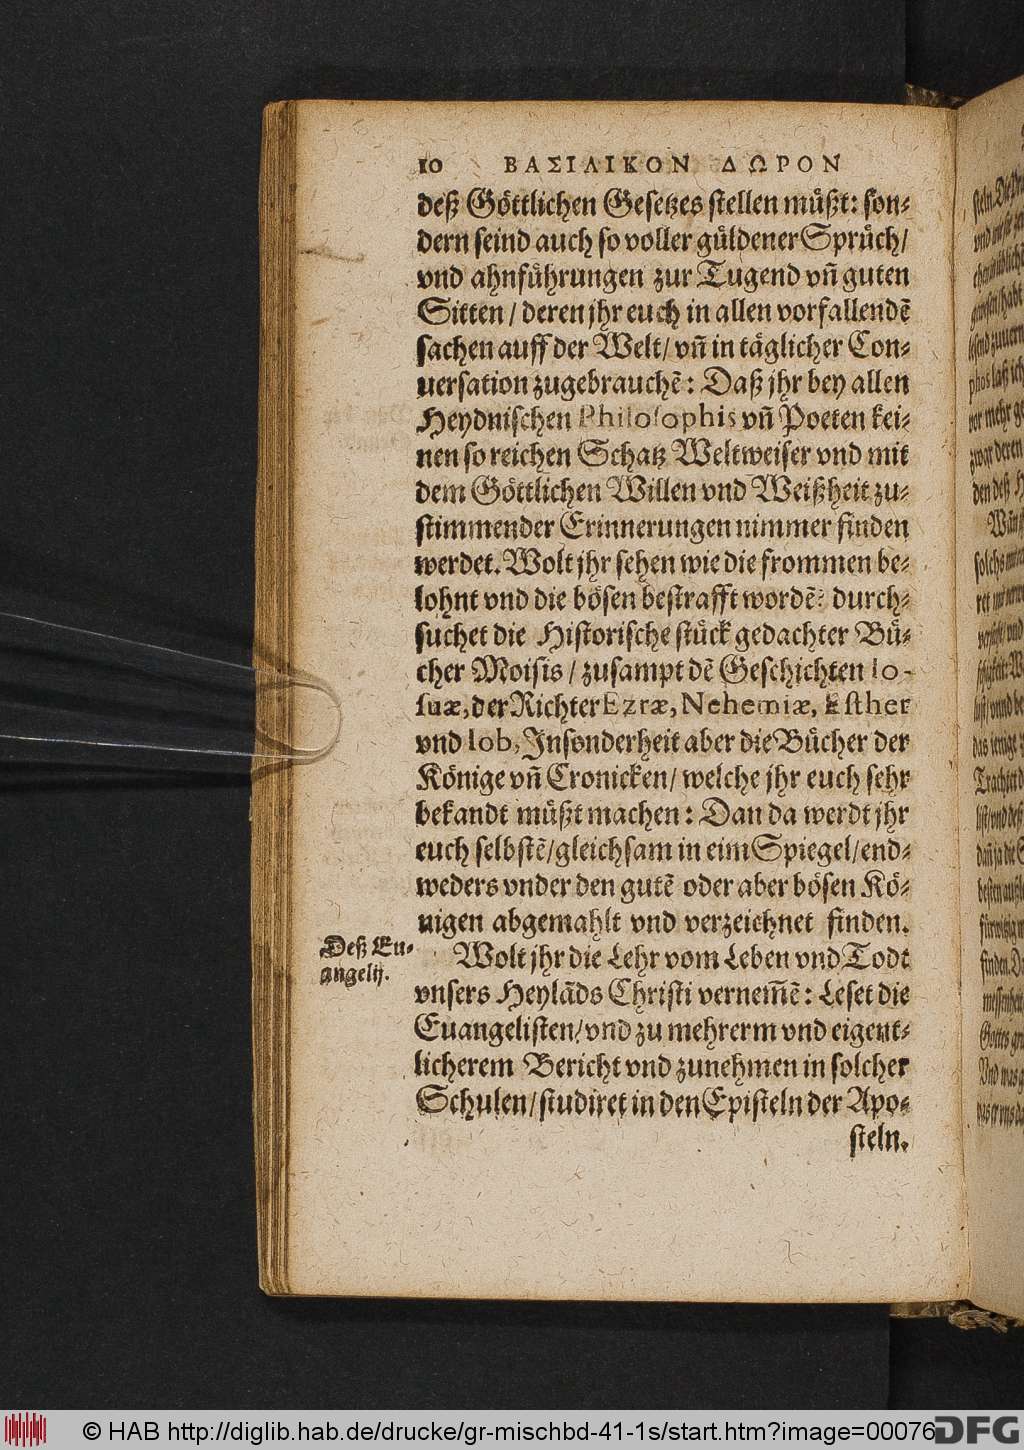 10 ΒΑΣΙΛΙΚΟΝ ΔΩΡΟΝ
deß Göttlichen Gesetzes stellen müßt: son-
dern seind auch so voller güldener Sprüch/
vnd ahnführungen zur Tugend vñ guten
Sitten / deren jhr euch in allen vorfallendẽ
sachen auff der Welt/ vñ in täglicher Con-
uersation zugebrauchẽ: Daß jhr bey allen
Heydnischen Philosophis vñ Poeten kei-
nen so reichen Schatz Weltweiser vnd mit
dem Göttlichen Willen vnd Weißheit zu-
stimmender Erinnerungen nimmer finden
werdet. Wolt jhr sehen wie die frommen be-
lohnt vnd die bösen bestrafft wordẽ: durch-
suchet die Historische stück gedachter Bü-
cher Moisis / zusampt dẽ Geschichten Io-
suæ, der Richter Ezræ, Nehemiæ, Esther
vnd Iob, Insonderheit aber die Bücher der
Könige vñ Cronicken/ welche jhr euch sehr
bekandt müßt machen: Dan da werdt jhr
euch selbstẽ/gleichsam in eim Spiegel/end-
weders vnder den gutẽ oder aber bösen Kö-
uigen abgemahlt vnd verzeichnet finden.
Deß Eu-
angelij.
Wolt jhr die Lehr vom Leben vnd Todt
vnsers Heylãds Christi vernem̃ẽ: Leset die
Euangelisten/vnd zu mehrerm vnd eigent-
licherem Bericht vnd zunehmen in solcher
Schulen/studiret in den Episteln der Apo-
steln.
© HAB http://diglib.hab.de/drucke/gr-mischbd-41-1s/start.htm?image=00076
DFG